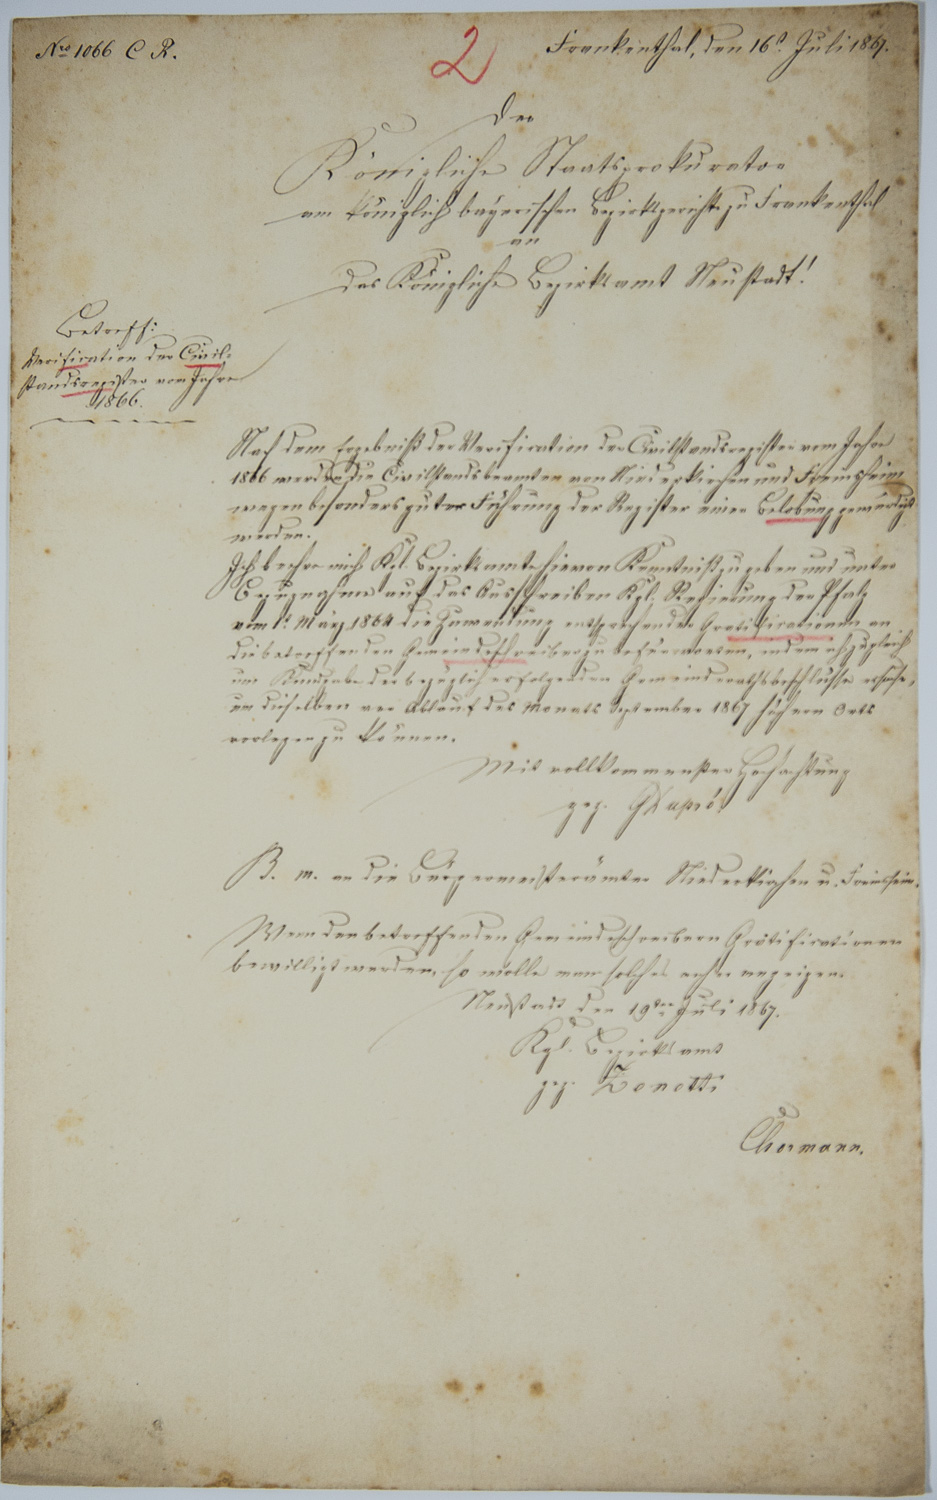 Nro 1066 C R.
2
Frankenthal, den 16t. Juli 1867.
Der
Königliche Staatsprokurator
am königlich bayerischen Bezirksgerichte zu Frankenthal
an
das Königliche Bezirksamt Neustadt!
Betreff:
Verification der Civil-
standsregister vom Jahre
1866.
Nach dem Ergebniß der Verification der Civilstandsregister vom Jahre
1866 werden die Civilstandsbeamten von Niederkirchen und Freinsheim
wegen besonders guter Führung der Register einer Belobung gewürdigt
werden.
Ich beehre mich Kgl. Bezirksamte hievon Kenntniß zu geben und unter
Bezugnahme auf das Ausschreiben Kgl. Regierung der Pfalz
vom März 1864 die Zuwendung entsprechender Gratificationen an
die betreffenden Gemeindeschreiber zu befürworten, indem ich zugleich
um Kundgabe der bezüglich erfolgenden Gemeinderathsbeschlüsse ersuche,
um dieselben vor Ablauf des Monats September 1867 höhern Orts
vorlegen zu können.
Mit vollkommenster Hochachtung
gez.
B. m. an die Bürgermeisterämter Niederkirchen u. Freinsheim.
Wenn den betreffenden Gemeindeschreibern Gratificationen
bewilligt werden, so wolle man solches anher anzeigen.
Neustadt den 19ten Juli 1867.
Kgl. Bezirksamt
gez. Zonotti
Chormann.